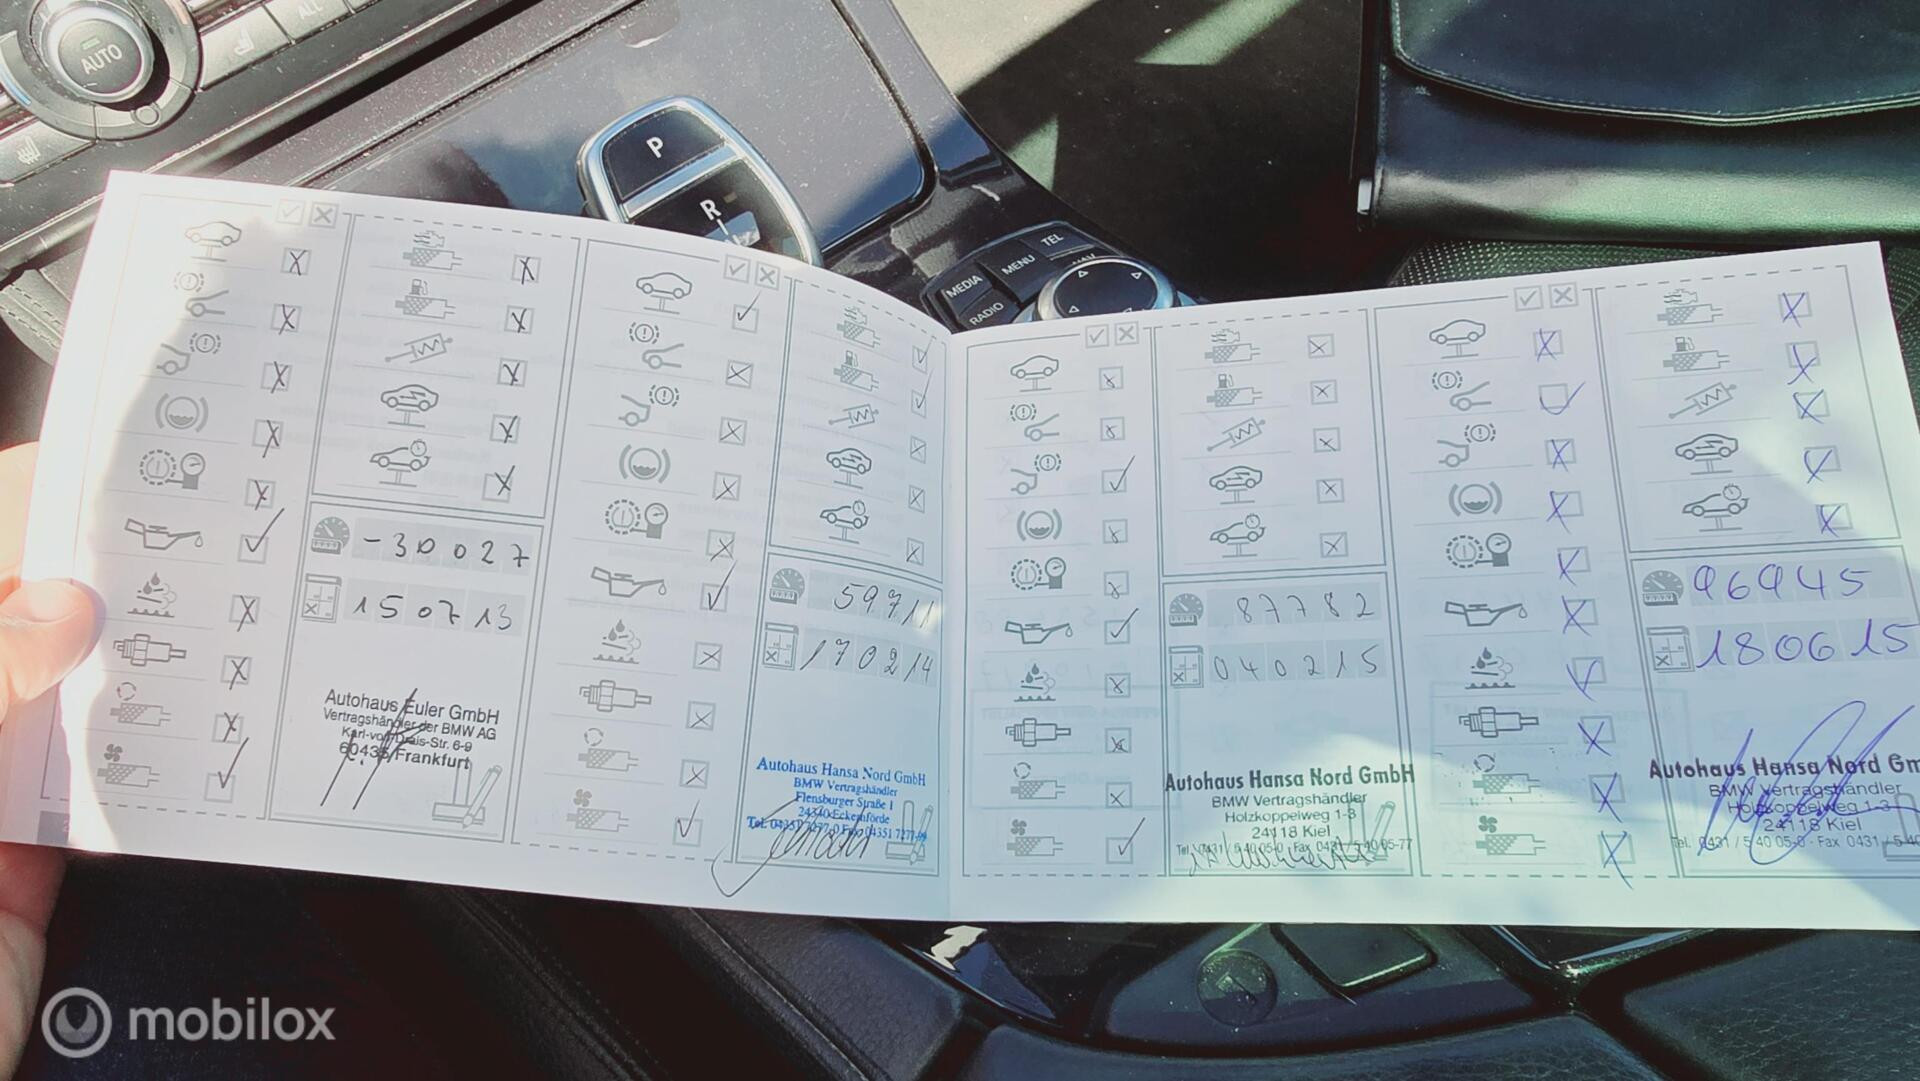 AUTO
ALL
P
R
TEL
MENU
MEDIA
RADIO
-30027
150713
Autohaus Euler GmbH
Vertragshändler der BMW AG
Karl-von-Drais-Str. 6-9
60435 Frankfurt
59711
170214
Autohaus Hansa Nord GmbH
BMW Vertragshändler
Flensburger Straße 1
24340 Eckernförde
Tel. 04351 7277-0 Fax 04351 7277-
87782
040215
Autohaus Hansa Nord GmbH
BMW Vertragshändler
Holzkoppelweg 1-3
24118 Kiel
Tel. 0431 / 5 40 05-0 · Fax 0431 / 5 40 05-77
96945
180615
Autohaus Hansa Nord Gm
BMW Vertragshändler
Holzkoppelweg 1-3
24118 Kiel
Tel. 0431 / 5 40 05-0 · Fax 0431 / 5 40
mobilox